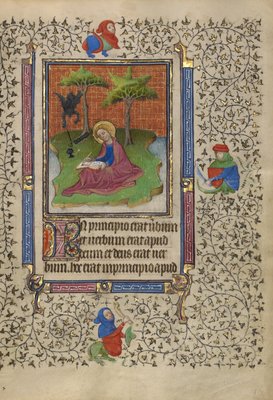 In principio erat uerbum
et uerbum erat apud
deum et deus erat uer
bum. hoc erat in principio apud